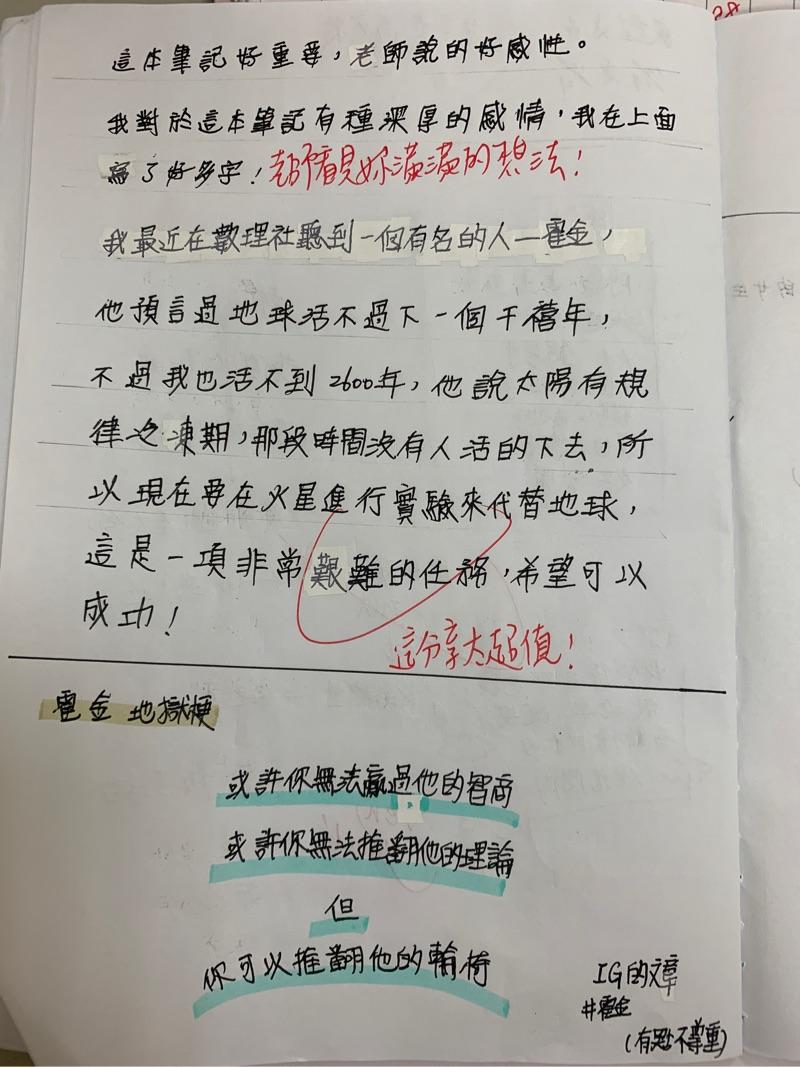 這本筆記好重要，老師說的好感性。
我對於這本筆記有種深厚的感情，我在上面
寫了好多字！老師看見妳滿滿的想法！
我最近在數理社聽到一個有名的人—霍金，
他預言過地球活不過下一個千禧年，
不過我也活不到2600年，他說太陽有規
律之凍期，那段時間沒有人活的下去，所
以現在要在火星進行實驗來代替地球，
這是一項非常艱難的任務，希望可以
成功！
這分享太超值！
霍金 地獄梗
或許你無法贏過他的智商
或許你無法推翻他的理論
但
你可以推翻他的輪椅
IG的文章
#霍金
(有點不尊重)